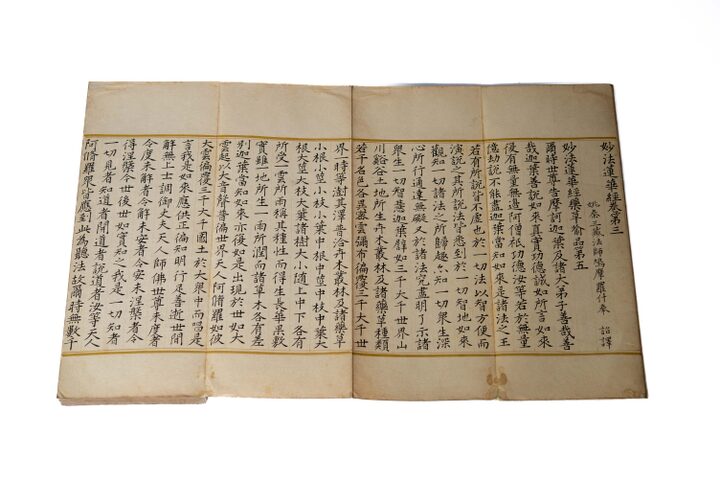 妙法蓮華經卷第三
姚秦三藏法師鳩摩羅什奉 詔譯
妙法蓮華經藥草喻品第五
爾時世尊告摩訶迦葉及諸大弟子善哉善
哉迦葉善說如來真實功德誠如所言如來
復有無量無邊阿僧祇功德汝等若於無量
億劫說不能盡迦葉當知如來是諸法之王
若有所說皆不虛也於一切法以智方便而
演說之其所說法皆悉到於一切智地如來
觀知一切諸法之所歸趣亦知一切眾生深
心所行通達無礙又於諸法究盡明了示諸
眾生一切智慧迦葉譬如三千大千世界山
川谿谷土地所生卉木叢林及諸藥草種類
若干名色各異密雲彌布徧覆三千大千世
界一時等澍其澤普洽卉木叢林及諸藥草
小根小莖小枝小葉中根中莖中枝中葉大
根大莖大枝大葉諸樹大小隨上中下各有
所受一雲所雨稱其種性而得生長華果敷
實雖一地所生一雨所潤而諸草木各有差
別迦葉當知如來亦復如是出現於世如大
雲起以大音聲普徧世界天人阿脩羅如彼
大雲徧覆三千大千國土於大眾中而唱是
言我是如來應供正徧知明行足善逝世間
解無上士調御丈夫天人師佛世尊未度者
令度未解者令解未安者令安未涅槃者令
得涅槃今世後世如實知之我是一切知者
一切見者知道者開道者說道者汝等天人
阿脩羅眾皆應到此為聽法故爾時無數千